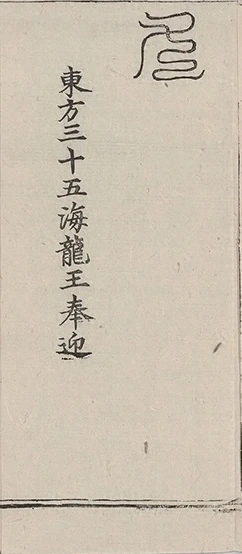 東方三十五海龍王奉迎